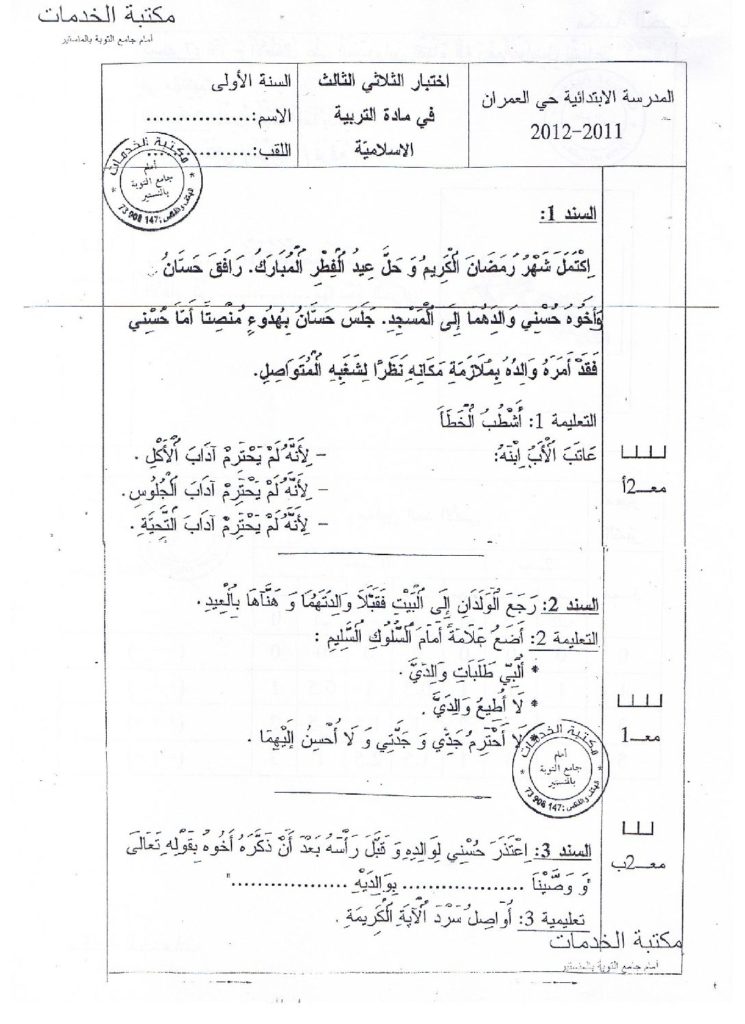 مكتبة الخدمات
أمام جامع التوبة بالمنستير
المدرسة الابتدائية حي العمران
2012-2011
اختبار الثلاثي الثالث
في مادة التربية
الاسلاميّة
السنة الأولى
الاسم:................
اللقب:................
مكتبة الخدمات
أمام
جامع التوبة
بالمنستير
الهاتف والفاكس :147 908 73
السند 1:
اِكْتَمَلَ شَهْرُ رَمَضَانَ الْكَرِيمُ وَ حَلَّ عِيدُ الْفِطْرِ الْمُبَارَكُ. رَافَقَ حَسَّانُ
وَأَخُوهُ حُسْنِي وَالِدَهُمَا إِلَى الْمَسْجِدِ. جَلَسَ حَسَّانُ بِهُدُوءٍ مُنْصِتًا أَمَّا حُسْنِي
فَقَدْ أَمَرَهُ وَالِدُهُ بِمُلَازَمَةِ مَكَانِهِ نَظَرًا لِشَغَبِهِ الْمُتَوَاصِلِ.
التعليمة 1: أَشْطُبُ الْخَطَأَ
عَاتَبَ الْأَبُ اِبْنَهُ:
– لِأَنَّهُ لَمْ يَحْتَرِمْ آدَابَ الْأَكْلِ .
– لِأَنَّهُ لَمْ يَحْتَرِمْ آدَابَ الْجُلُوسِ.
– لِأَنَّهُ لَمْ يَحْتَرِمْ آدَابَ التَّحِيَّةِ .
معـ2أ
السند 2: رَجَعَ الْوَلَدَانِ إِلَى الْبَيْتِ فَقَبَّلَا وَالِدَتَهُمَا وَ هَنَّآهَا بِالْعِيدِ.
التعليمة 2: أَضَعُ عَلَامَةً أَمَامَ السُّلُوكِ السَّلِيمِ :
* أُلَبِّي طَلَبَاتِ وَالِدَيَّ .
* لَا أُطِيعُ وَالِدَيَّ .
لَا أَحْتَرِمُ جَدِّي وَ جَدَّتِي وَ لَا أُحْسِنُ إِلَيْهِمَا .
معـ1
مكتبة الخدمات
أمام
جامع التوبة
بالمنستير
الهاتف والفاكس :147 908 73
السند 3: اِعْتَذَرَ حُسْنِي لِوَالِدِهِ وَ قَبَّلَ رَأْسَهُ بَعْدَ أَنْ ذَكَّرَهُ أَخُوهُ بِقَوْلِهِ تَعَالَى
"وَ وَصَّيْنَا .................. بِوَالِدَيْهِ .................."
معـ2ب
تعليمية 3: أُوَاصِلُ سَرْدَ الْآيَةِ الْكَرِيمَةِ .
مكتبة الخدمات
أمام جامع التوبة بالمنستير